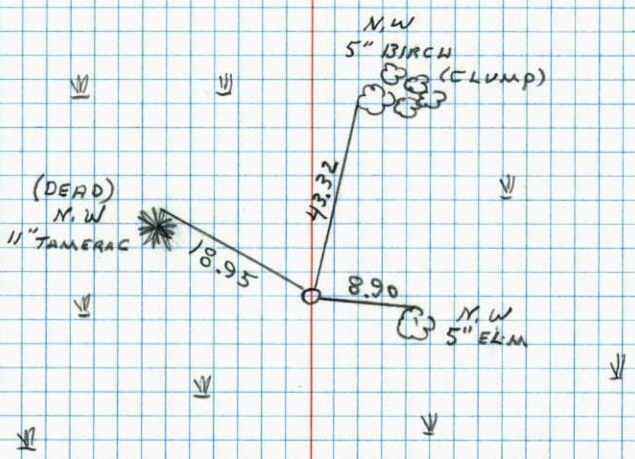 N.W
5" BIRCH
(CLUMP)
43.32
(DEAD)
N.W
11" TAMERAC
18.95
8.90
N.W
5" ELM